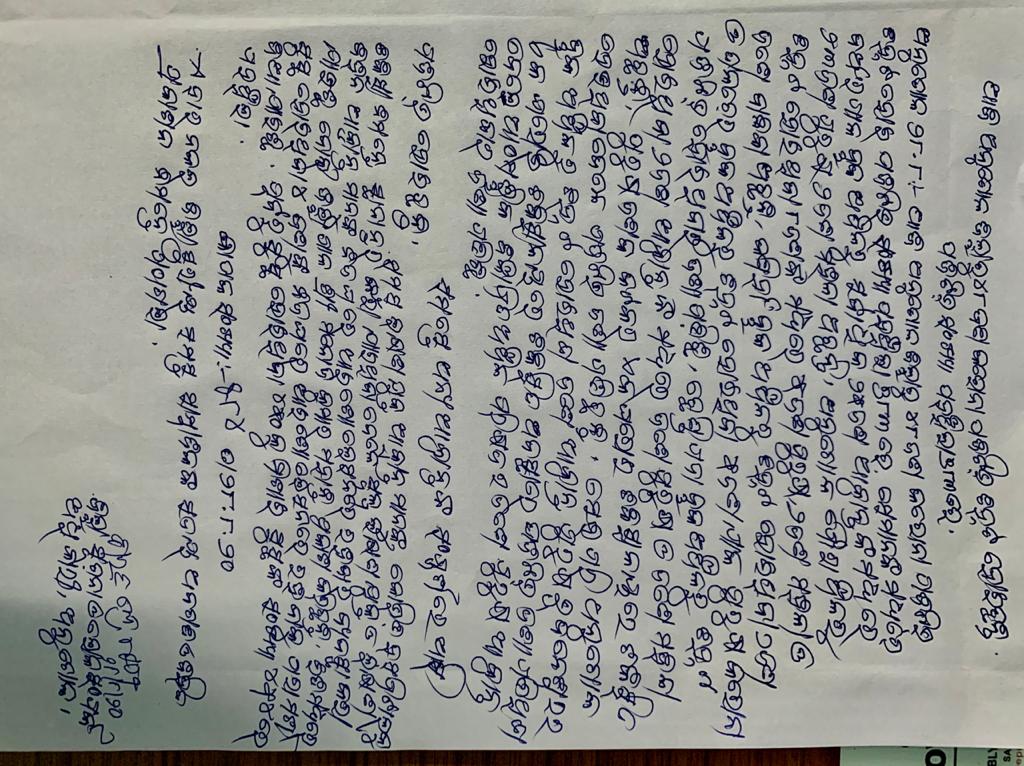 ଆଜି ଅନୁଗୋଳ ଜିଲ୍ଲାରୁ ୪୮ ଜଣ କରୋନା ପଜିଟିଭ୍ ଚିହ୍ନଟ ହୋଇଛନ୍ତି ।
ପଜିଟିଭ୍ ସଂଖ୍ୟା ପହଞ୍ଚିଲା ୬୮୩ରେ ।
ଅନୁଗୋଳ ୨୮.୮:- ଆଜି ଅନୁଗୋଳ ଜିଲ୍ଲାରୁ ୪୮ ଜଣ କରୋନା ପଜିଟିଭ୍
ଚିହ୍ନଟ ହୋଇ ପଜିଟିଭ୍ ସଂଖ୍ୟା ପହଞ୍ଚିଲା ୬୮୩ ରେ. ସେମାନଙ୍କ ମଧ୍ୟରେ
ବ୍ଲକ ଅଞ୍ଚଳରୁ ସର୍ବାଧିକ ୨୫ଜଣ ଆକ୍ରାନ୍ତଙ୍କ ମଧ୍ୟରେ
୨୩ଜଣ ପୁରୁଷ ୨ଜଣ ମହିଳା ଅଛନ୍ତି, ଅନୁଗୋଳ ପୌରାଞ୍ଚଳରୁ
ଚିହ୍ନଟ ହୋଇଥିବା ୮ଜଣଙ୍କ ମଧ୍ୟରେ ୫ଜଣ ପୁରୁଷ, ୨ଜଣ ମହିଳା ଓ
ଜଣେ ବାଳିକା ଅଛନ୍ତି, କଣିହାଁ ବ୍ଲକ ଅଞ୍ଚଳରୁ ଚିହ୍ନଟ ହୋଇଥିବା ୨ଜଣ
ଓ ତାଳଚେର ବ୍ଲକ ଅଞ୍ଚଳରୁ ଚିହ୍ନଟ ହୋଇଥିବା ୫ଜଣଯାକ ପୁରୁଷ କରୋନା
ପଜିଟିଭ୍ ହୋଇଥିବାର ଜଣା ପଡିଛି, ଛେଣ୍ଡିପଦା ବ୍ଲକ ଅଞ୍ଚଳରୁ ଚିହ୍ନଟ
ହୋଇଥିବା ୨ଜଣ ଆକ୍ରାନ୍ତଙ୍କ ମଧ୍ୟରେ ଜଣେ ପୁରୁଷ ଓ ଜଣେ ମହିଳା
ଅଛନ୍ତି, ପୁରୁଷ ଜଣକ କଟକର ଏକ ଘରୋଇ ଚିକିତ୍ସାଳୟରେ ଚିକିତ୍ସିତ
ହେଉଥିବା ବେଳେ ପଜିଟିଭ୍ ଜଣା ପଡିଛନ୍ତି, ସେହିପରି ଅନୁଗୋଳ
ବ୍ଲକ ଅଞ୍ଚଳରୁ ଚିହ୍ନଟ ହୋଇଥିବା ଜଣେ ଆକ୍ରାନ୍ତ ପୁରୁଷ ଭୁବନେଶ୍ୱରର
ଏକ ଘରୋଇ ଚିକିତ୍ସାଳୟରେ ଚିକିତ୍ସିତ ଅବସ୍ଥାରେ ପଜିଟିଭ୍ ଜଣା ପଡିଥିବା
ବେଳେ ଆଠମଲ୍ଲିକ ବିଜ୍ଞାପିତ ଅଞ୍ଚଳ ପରିଷଦର ଜଣେ ପୁରୁଷ ଆକ୍ରାନ୍ତ
ହୋଇଥିବାର ଜଣା ପଡିଛି ।
ସମସ୍ତେ ଅନ୍ୟ ଆକ୍ରାନ୍ତଙ୍କ ସଂସ୍ପର୍ଶରେ ଆସି
ପଜିଟିଭ୍ ହୋଇଛନ୍ତି.
ସମସ୍ତ ଲକ୍ଷଣଯୁକ୍ତ ଆକ୍ରାନ୍ତମାନଙ୍କୁ କୋଭିଡ୍ ହସ୍ପିଟାଲକୁ
ଚିକିତ୍ସା ନିମନ୍ତେ ସ୍ଥାନାନ୍ତର କରା ଯାଇଥିବା ବେଳେ ସ୍ୱଳ୍ପ ଲକ୍ଷଣ ଯୁକ୍ତ ଓ ଲକ୍ଷଣ
ବିହୀନ ଆକ୍ରାନ୍ତମାନଙ୍କ ନିଜଘରେ ଆଇସୋଲେସନରେ ରହିବାର ବ୍ୟବସ୍ଥା କରା
ଯାଇଛି ବୋଲି ଜିଲ୍ଲାପାଳ ଶ୍ରୀ ମନୋଜ କୁମାର ମହାନ୍ତି ପ୍ରକାଶ କରିଛନ୍ତି. ଇତିମଧ୍ୟରେ
ସୁସ୍ଥ ହୋଇଥିବା ୪ ଜଣଙ୍କୁ ନିଜଘରେ ଆଇସୋଲେସନରେ ରହିବାକୁ ପରାମର୍ଶ
ଦିଆଯାଇଛି. ପୂର୍ବରୁ ସୁସ୍ଥ ହୋଇଥିବା ୪୫୦କୁ ମିଶାଇ ସୁସ୍ଥଙ୍କ ସଂଖ୍ୟା ୪୫୪ରେ
ପହଞ୍ଚିଲା.
ଜ୍ଞାପକ ସଂଖ୍ୟା:- ତା ୨୮.୮.୨୦
ଏହାର ନକଲ ଜିଲ୍ଲାସ୍ତରୀୟ ସମସ୍ତ ସାମ୍ବାଦିକଙ୍କ ସଦୟ ଅବଗତି ଓ
ପ୍ରକାଶନ ନିମନ୍ତେ ପଠାଗଲା.
ଜିଲ୍ଲା ସୂଚନା ଓ ଲୋକସଂପର୍କ
ଅଧିକାରୀ, ଅନୁଗୋଳ.